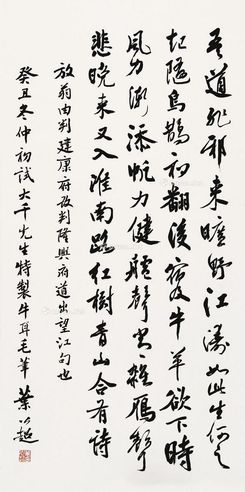 吾道非邪來曠野江濤如此去何之
起隨烏鵲初翻後宿及牛羊欲下時
風力漸添帆力健艣聲常雜雁聲
悲晚來又入淮南路紅樹青山合有詩
放翁由判建康府改判隆興府道出望江句也
癸丑冬仲初試大千先生特製牛耳毛筆 葉公超